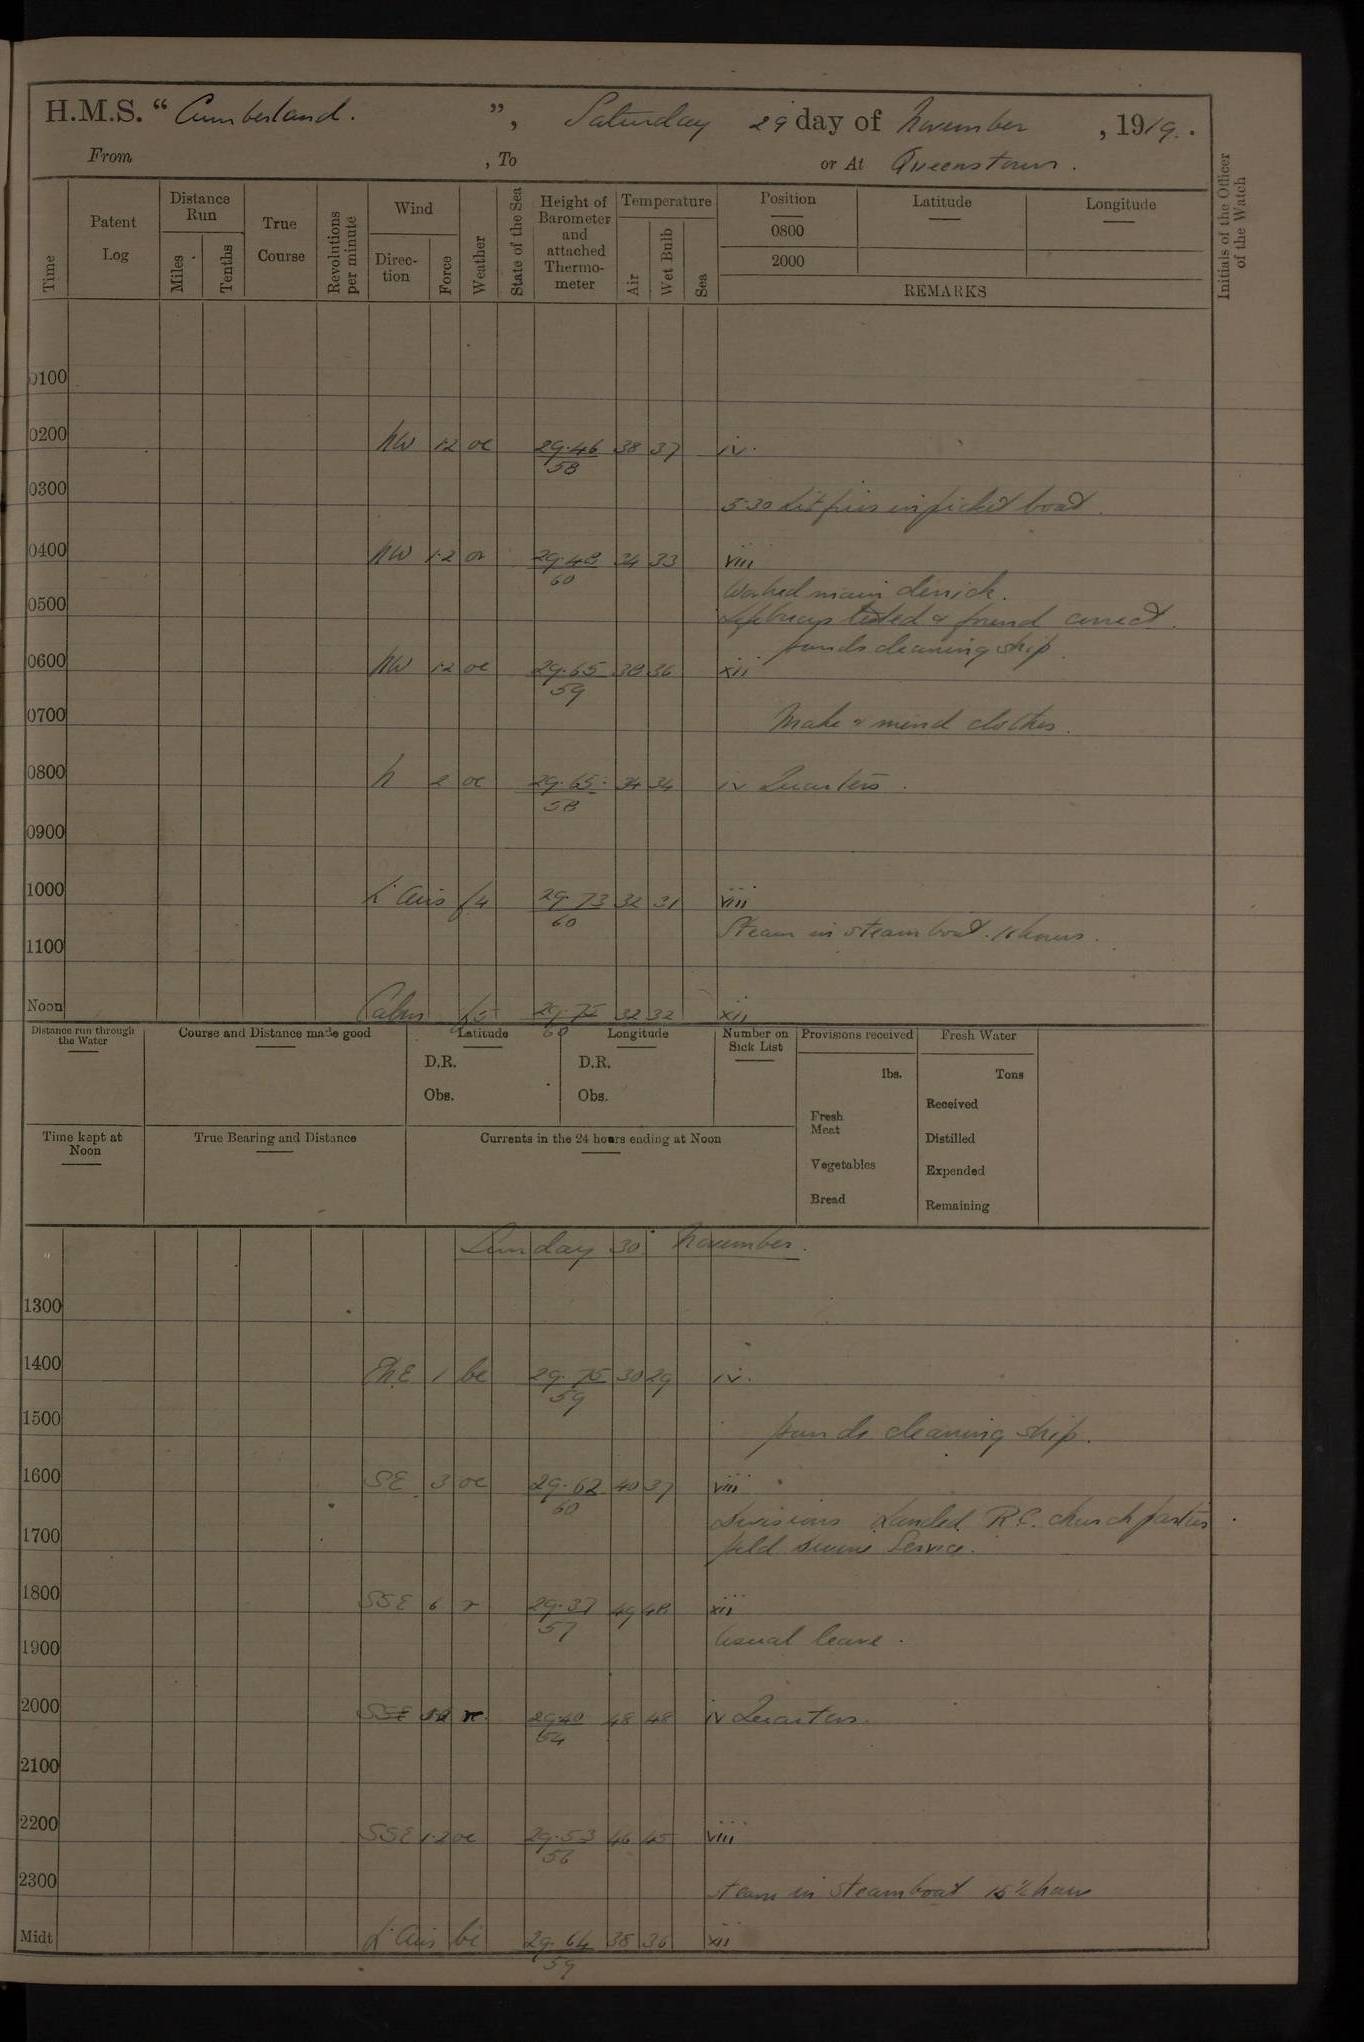 H.M.S. “ Cumberland. ”, Saturday 29 day of November , 1919.
From , To or At Queenstown.
Time
Patent Log
Distance Run
Miles
Tenths
True Course
Revolutions per minute
Wind
Direction
Force
Weather
State of the Sea
Height of Barometer and attached Thermometer
Temperature
Air
Wet Bulb
Sea
Position
0800
2000
Latitude
Longitude
REMARKS
Initials of the Officer of the Watch
0100
0200 NW 1·2 oc 29·46 38 37 iv.
58
0300
5·30 Lit fires in picket boat.
0400 NW 1·2 29·48 34 33 viii
60
Worked main derrick.
0500
Lifebuoys tested & found correct.
Hands cleaning ship
0600 NW 1·2 oc 29·65 38 36 xii
59
0700
Make & mend clothes.
0800 N 2 oc 29·65 34 34 iv Quarters.
58
0900
1000 Lt Airs f 4 29·73 32 31 viii
60
Steam in steamboat. 16 hours.
1100
Noon Calm f 5 29·75 32 32 xii
60
Distance run through the Water
Course and Distance made good
Latitude
D.R.
Obs.
Longitude
D.R.
Obs.
Number on Sick List
Provisions received
lbs.
Fresh Meat
Vegetables
Bread
Fresh Water
Tons
Received
Distilled
Expended
Remaining
Time kept at Noon
True Bearing and Distance
Currents in the 24 hours ending at Noon
Sunday 30 November.
1300
1400 1 bc 29·75 30 29 iv.
59
1500
Hands cleaning ship.
1600 SE 3 oc 29·62 40 37 viii
60
Divisions Landed R.C. church parties
1700
Held Divine Service.
1800 SSE 6 r 29·37 49 48 xii
57
Usual leave.
1900
2000 SSE r. 29·40 48 48 iv Quarters.
54
2100
2200 SSE 1·2 oc 29·53 46 45 viii
56
2300
Steam in steamboat 15½ hours
Midt Lt Airs bc 29·64 38 36 xii
59